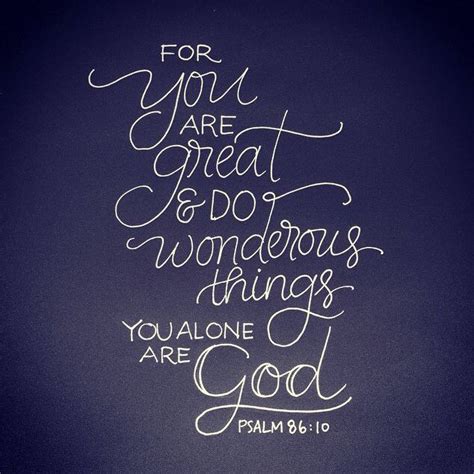 FOR
you
ARE
great
& DO
wonderous
things
YOU ALONE
ARE God
PSALM 86:10